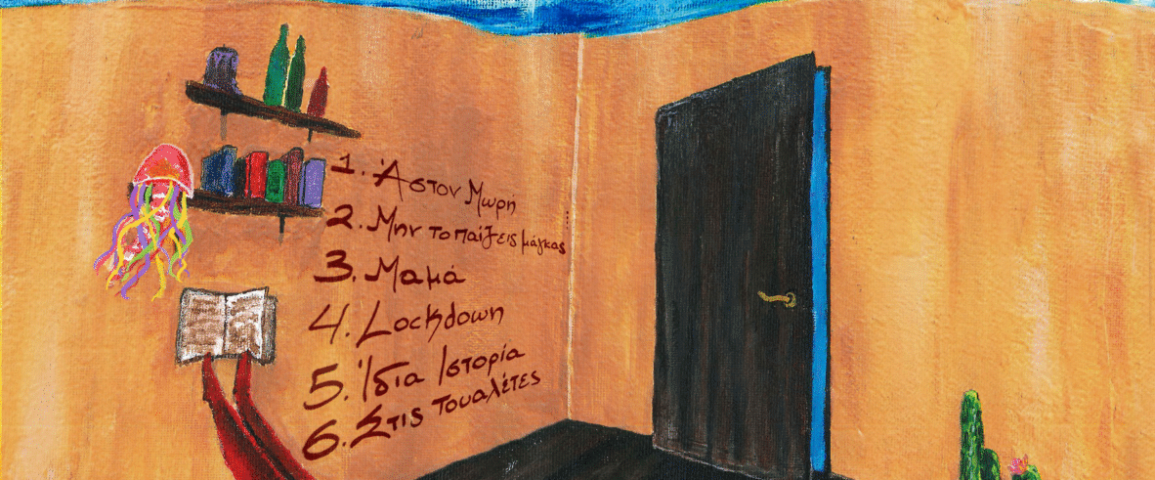 1. Άστον Μωρή
2. Μην το παίξεις μάγκας
3. Μαμά
4. Lockdown
5. Ίδια Ιστορία
6. Στις τουαλέτες